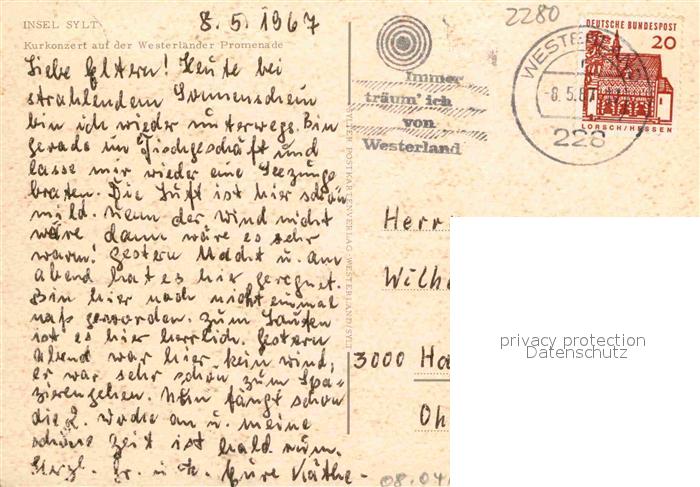 INSEL SYLT
8.5.1967
Kurkonzert auf der Westerländer Promenade
Liebe Eltern! Heute bei
strahlendem Sonnenschein
bin ich wieder unterwegs. Bin
gerade im Fischgeschäft und
lasse mir wieder eine Seezunge
braten. Die Luft ist hier schön
mild. Wenn der Wind nicht
wäre dann wäre es sehr
warm! Gestern Nacht u. am
Abend hat es hier geregnet.
Bin hier noch nicht einmal
naß geworden. Zum Laufen
ist es hier herrlich. Gestern
Abend war hier kein Wind,
er war sehr schön zum Spa-
zierengehen. Nun fängt schon
die 2. Woche an u. meine
schöne Zeit ist bald rum.
Herzl. Gr. u. K. Eure Käthe
SYLTER POSTKARTENVERLAG WESTERLAND/SYLT
Immer
träum' ich
von
Westerland
2280
WESTERLAND
-8.5.67
228
DEUTSCHE BUNDESPOST
20
LORSCH/HESSEN
Herrn
Wilh
3000 Ha
Oh
08.04
privacy protection
Datenschutz